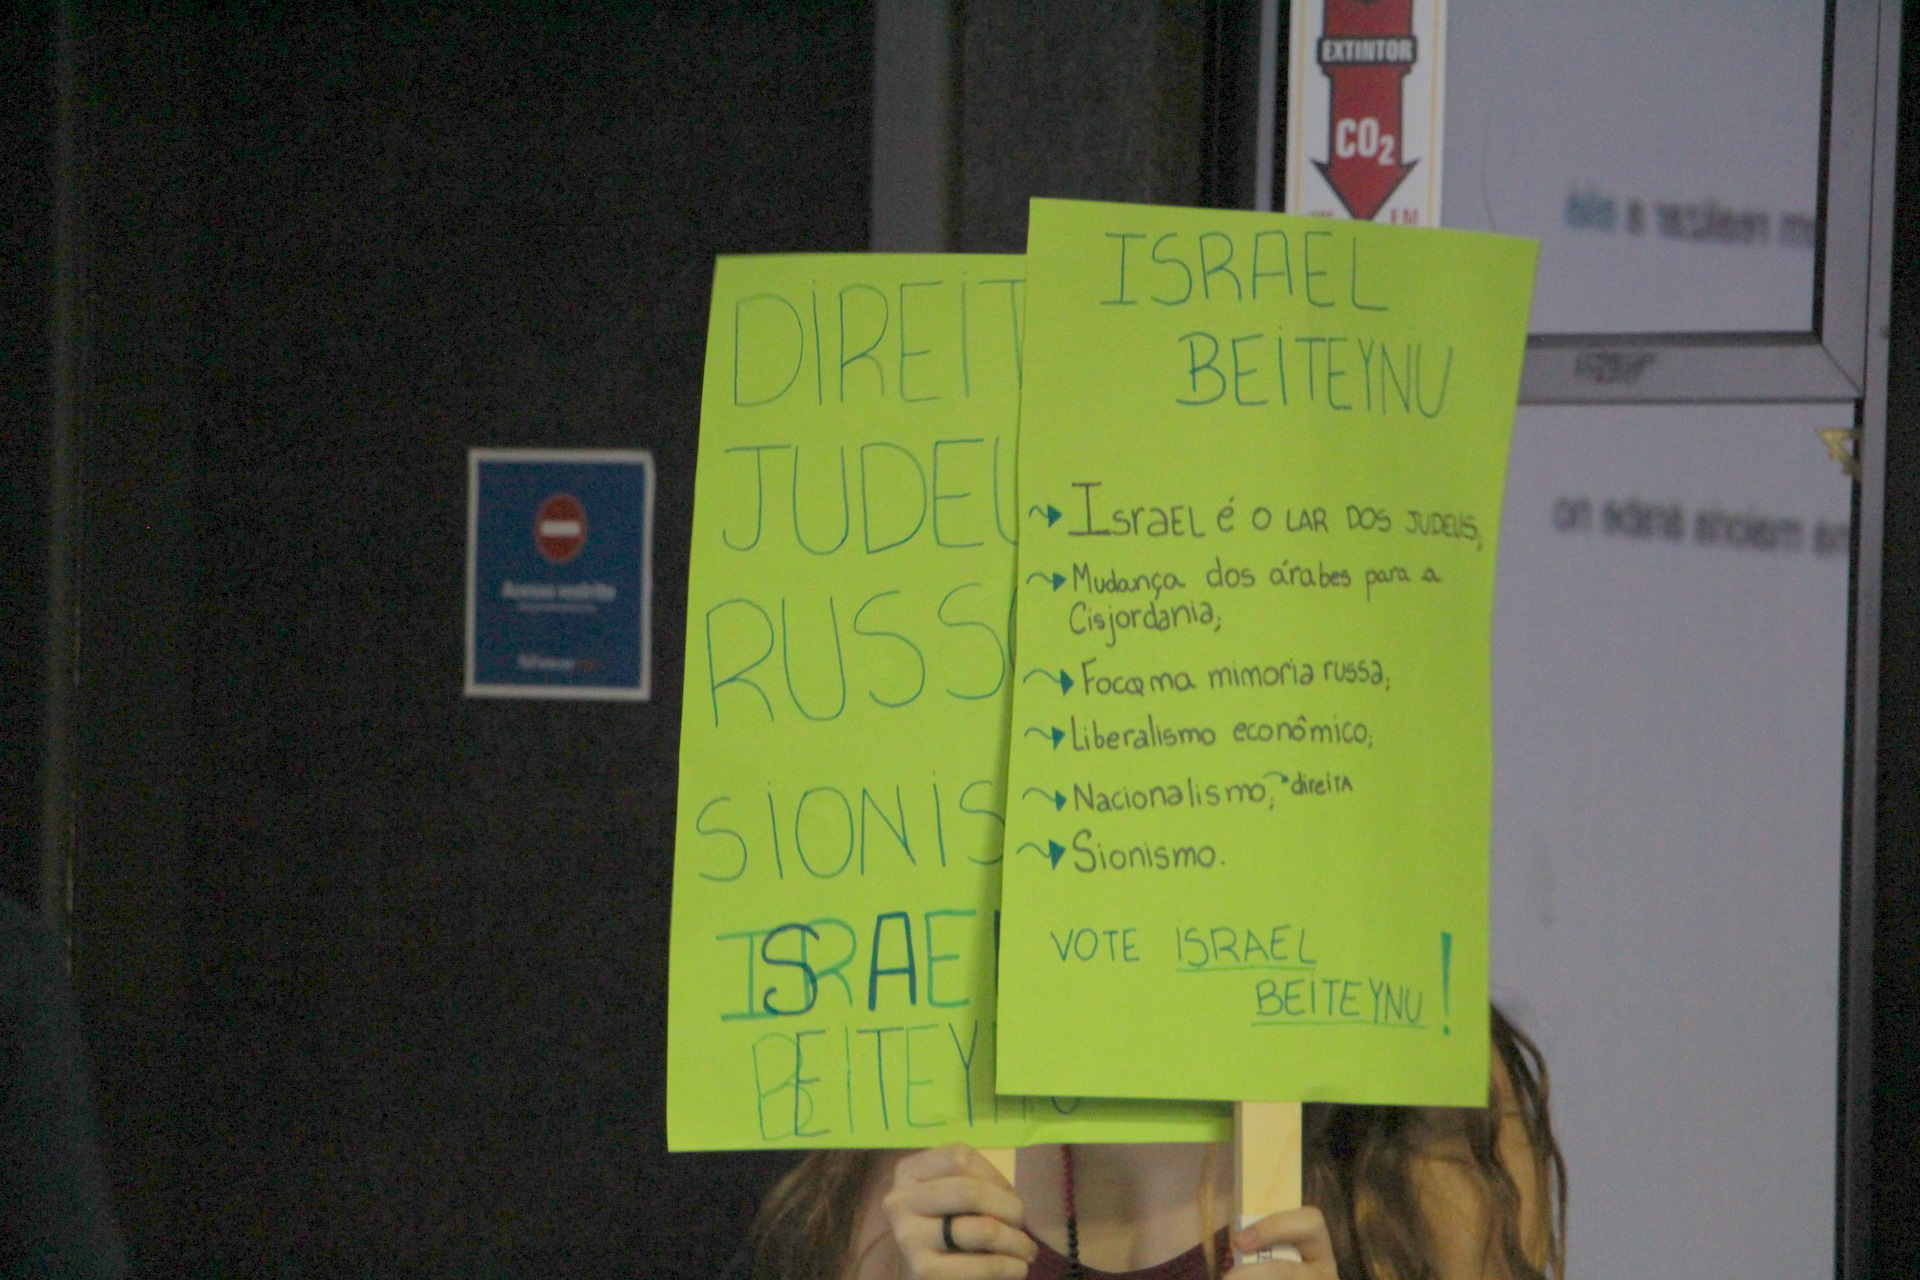 EXTINTOR
CO2
DIREIT
JUDEU
RUSSO
SIONIS
ISRAEL
BEITEYNU
ISRAEL
BEITEYNU
Israel é o LAR DOS JUDEUS;
Mudança dos árabes para a
Cisjordania;
Foco na mimoria russa;
Liberalismo econômico;
Nacionalismo; direita
Sionismo.
VOTE ISRAEL
BEITEYNU!
Acesso restrito